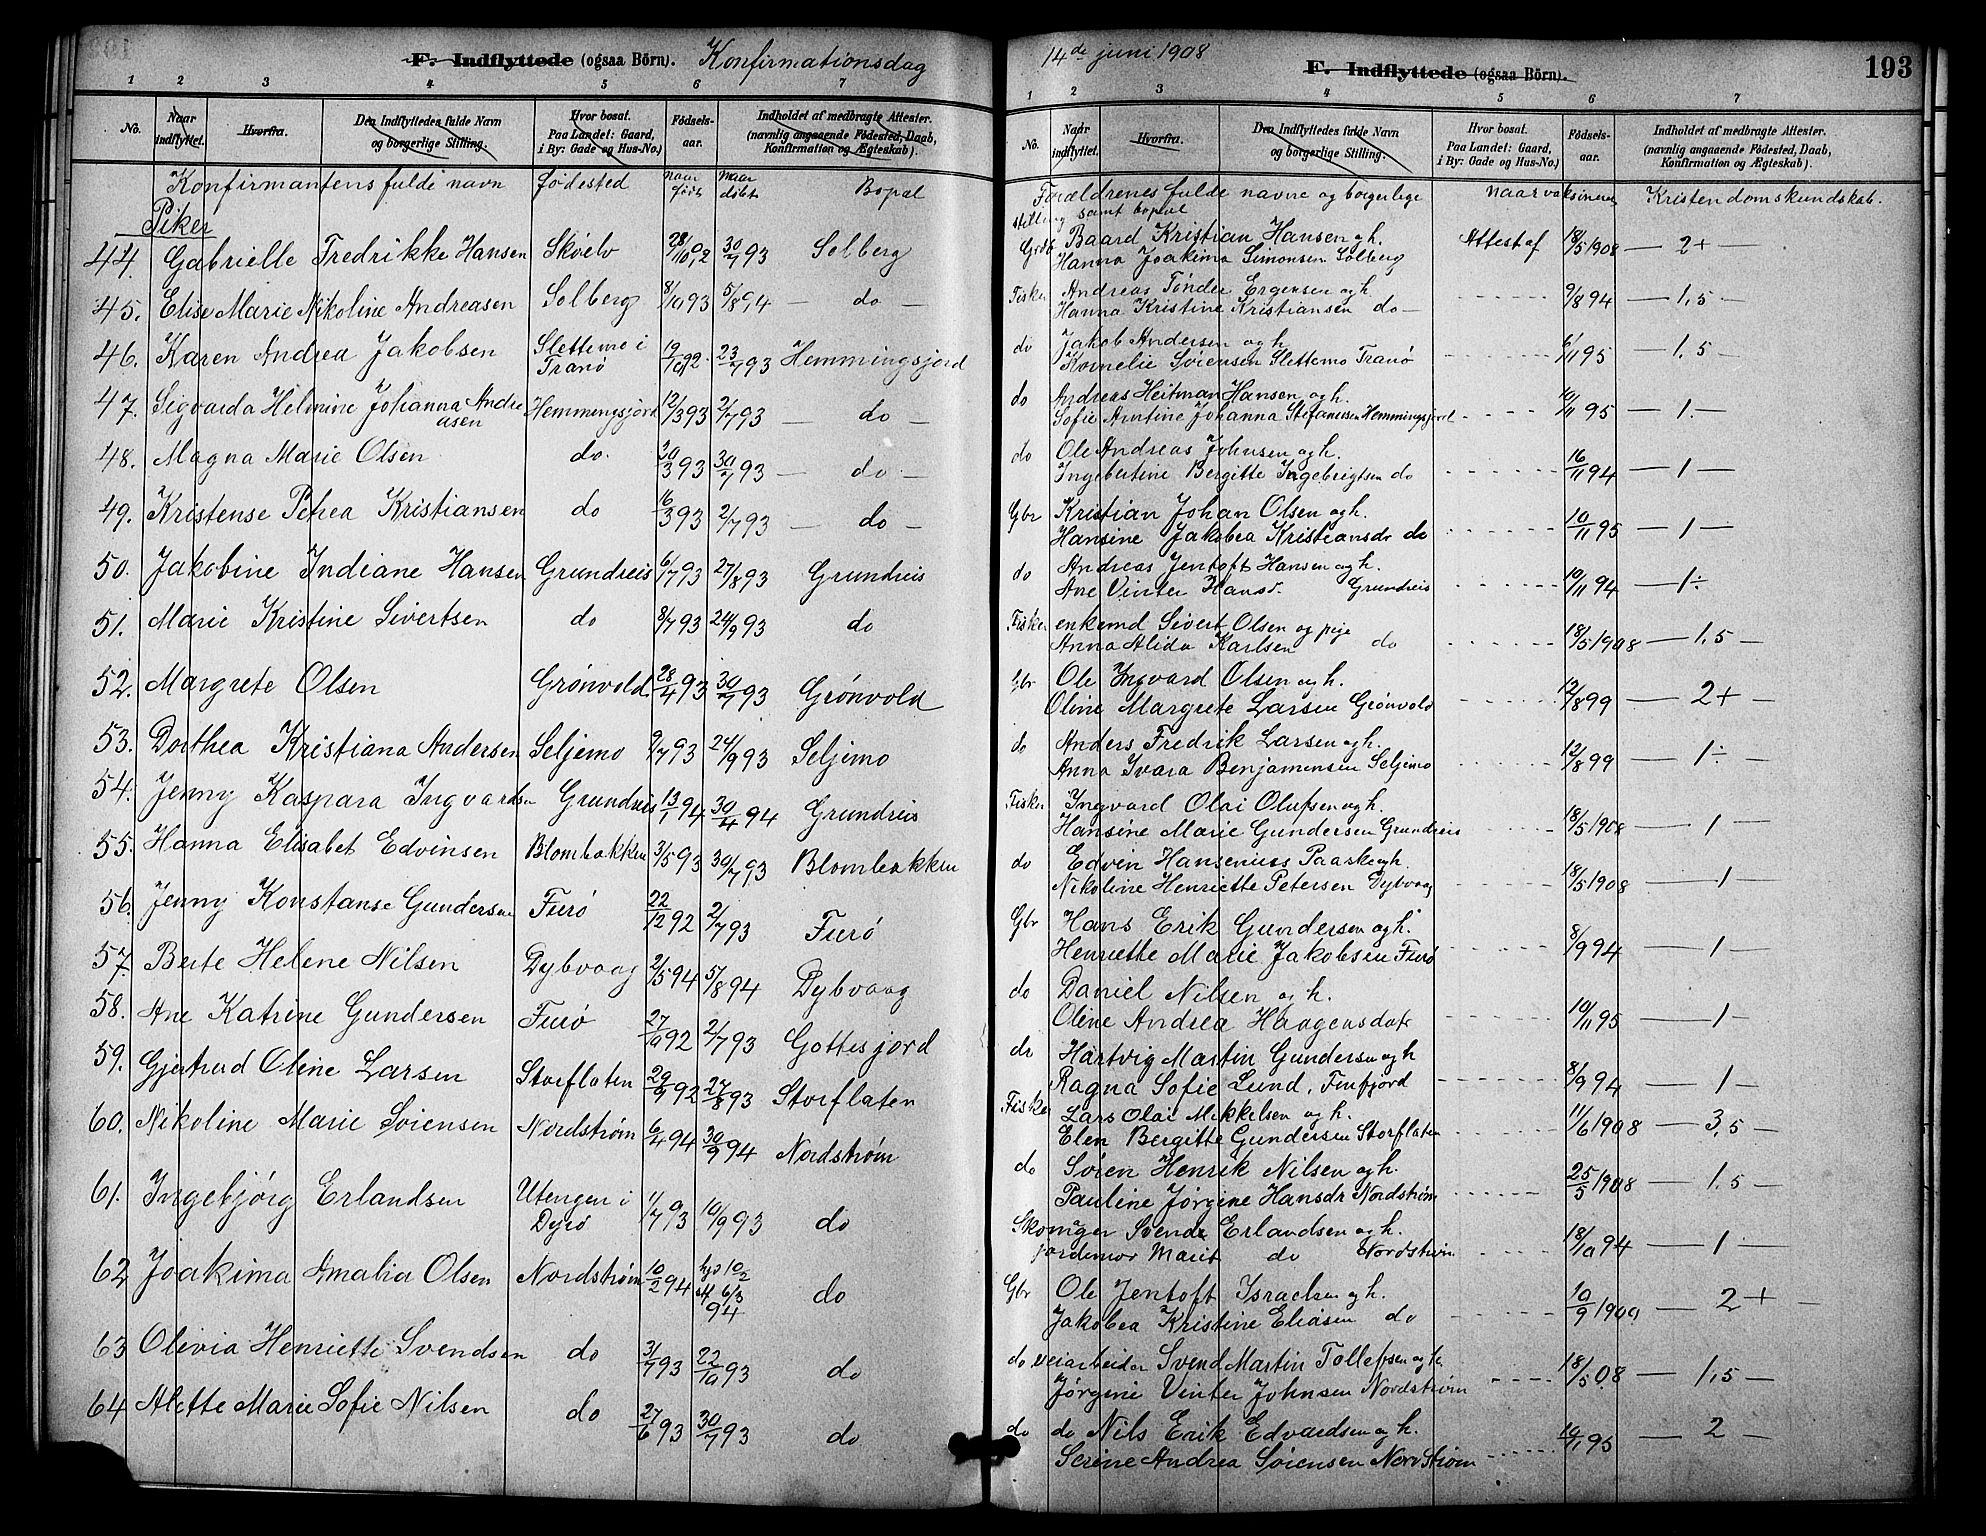 F. Indflyttede (ogsaa Börn). Konfirmationsdag
1 2 3 4 5 6 7
No. Naar indflyttet. Hvorfra. Den Indflyttedes fulde Navn og borgerlige Stilling. Hvor bosat. Paa Landet: Gaard, i By: Gade og Hus-No.) Fødsels-aar. Indholdet af medbragte Attester. (navnlig angaaende Födested, Daab, Konfirmation og Ægteskab).
Konfirmantens fulde navn fødested naar født naar døbt Bopæl
Piker
44. Gabrielle Fredrikke Hansen Skøelv 28/10 92 30/7 93 Solberg
45. Elise Marie Nikoline Andreasen Solberg 8/10 93 5/8 94 — do —
46. Karen Andrea Jakobsen Slettemo i Tranø 19/10 92 23/7 93 Hemmingsjord
47. Sigvarda Helmine Johanna Andreasen Hemmingsjord 12/3 93 2/7 93 — do —
48. Magna Marie Olsen do. 20/3 93 30/7 93 — do —
49. Kristense Petrea Kristiansen do 16/3 93 2/7 93 — do —
50. Jakobine Indiane Hansen Grundreis 6/7 93 27/8 93 Grundreis
51. Marie Kristine Sivertsen do 8/7 93 24/9 93 do
52. Margrete Olsen Grønvold 28/4 93 30/7 93 Grønvold
53. Dorthea Kristiana Andersen Seljemo 9/7 93 24/9 93 Seljemo
54. Jenny Kaspara Ingvardsen Grundreis 13/1 94 30/4 94 Grundreis
55. Hanna Elisabet Edvinsen Blombakken 3/5 93 30/7 93 Blombakken
56. Jenny Konstanse Gundersen Furø 22/12 92 2/7 93 Furø
57. Berte Helene Nilsen Dybvaag 2/5 94 5/8 94 Dybvaag
58. Ane Katrine Gundersen Furø 27/9 92 2/7 93 Gottesjord
59. Gjertrud Oline Larsen Storflaten 29/9 92 27/8 93 Storflaten
60. Nikoline Marie Sørensen Nordstrøm 6/4 94 30/9 94 Nordstrøm
61. Ingebjørg Erlandsen Utengen i Dyrø 1/7 93 10/9 93 do
62 Joakima Amalia Olsen Nordstrøm 10/2 94 hjd 10/2 st 6/3 94 do
63 Olivia Henriette Svendsen do 31/7 93 22/10 93 do
64 Alette Marie Sofie Nilsen do 27/6 93 30/7 93 do
14de juni 1908 F. Indflyttede (ogsaa Börn). 193
1 2 3 4 5 6 7
No. Naar indflyttet. Hvorfra. Den Indflyttedes fulde Navn og borgerlige Stilling. Hvor bosat. Paa Landet: Gaard, i By: Gade og Hus-No.) Fødsels-aar. Indholdet af medbragte Attester. (navnlig angaaende Födested, Daab, Konfirmation og Ægteskab).
Forældrenes fulde navne og borgerlige naar vaksineret Kristendomskundskab.
stilling samt bopæl
Baard Kristian Hansen og h. Attest af 18/5 1908 — 2+ —
Hanna Joakima Simonsen Solberg
Fisker Andreas Tønder Ergensen og h.
Hanna Kristine Kristiansen do — 9/8 94 — 1,5 —
do Jakob Andersen og h
Kornelie Sørensen Slettemo Tranø 6/11 95 — 1,5 —
do Andreas Heitman Hansen og h.
Sofie Arntine Johanna Stefanussen Hemmingsjord 10/11 95 — 1. —
do Ole Andreas Johnsen og h.
Ingebertine Bergitte Ingebrigtsen do 16/11 94 — 1 —
Gbr Kristian Johan Olsen og h.
Hansine Jakobea Kristiansdr do 10/11 95 — 1 —
do Andreas Jentoft Hansen og h.
Ane Vinter Hansd. Grundreis 10/11 94 — 1 ÷
Fisker enkemd Sivert Olsen og pige
Anna Alida Karlsen do 18/5 1908 — 1,5 —
Gbr Ole Ingvard Olsen og h.
Oline Margrete Larsen Grønvold 12/8 99 — 2+ —
do Anders Fredrik Larsen og h.
Anna Ivara Benjaminsen Seljemo 12/8 99 — 1 ÷
Fisker Ingvard Olai Olufsen og h.
Hansine Marie Gundersen Grundreis 18/5 1908 — 1 —
do Edvin Hansenius Paaske og h.
Nikoline Henriette Petersen Dybvaag 18/5 1908 — 1 —
Gbr Hans Erik Gundersen og h.
Henriette Marie Jakobsen Furø 8/9 94 — 1 —
do Daniel Nilsen og h.
Oline Andrea Haagensdatr 10/11 95 — 1 —
do Hartvig Martin Gundersen og h
Ragna Sofie Lund, Finfjord 8/9 94 — 1 —
Fisker Lars Olai Mikkelsen og h.
Elen Bergitte Gundersen Storflaten 11/6 1908 — 3,5 —
do Søren Henrik Nilsen og h.
Pauline Jørgine Hansdr Nordstrøm 25/5 1908 — 1,5 —
Svend Erlandsen og h.
jordemor Marit do Nordstrøm 18/10 94 — 1 —
Gbr Ole Jentoft Israelsen og h.
Jakobea Kristine Eliasen do 10/9 1900 — 2+ —
do veiarbeider Svend Martin Tollefsen og h.
Jørgine Vinter Johnsen Nordstrøm 18/5 08 — 1,5 —
do do Nils Erik Edvardsen og h.
Serine Andrea Sørensen Nordstrøm 95 — 2 —